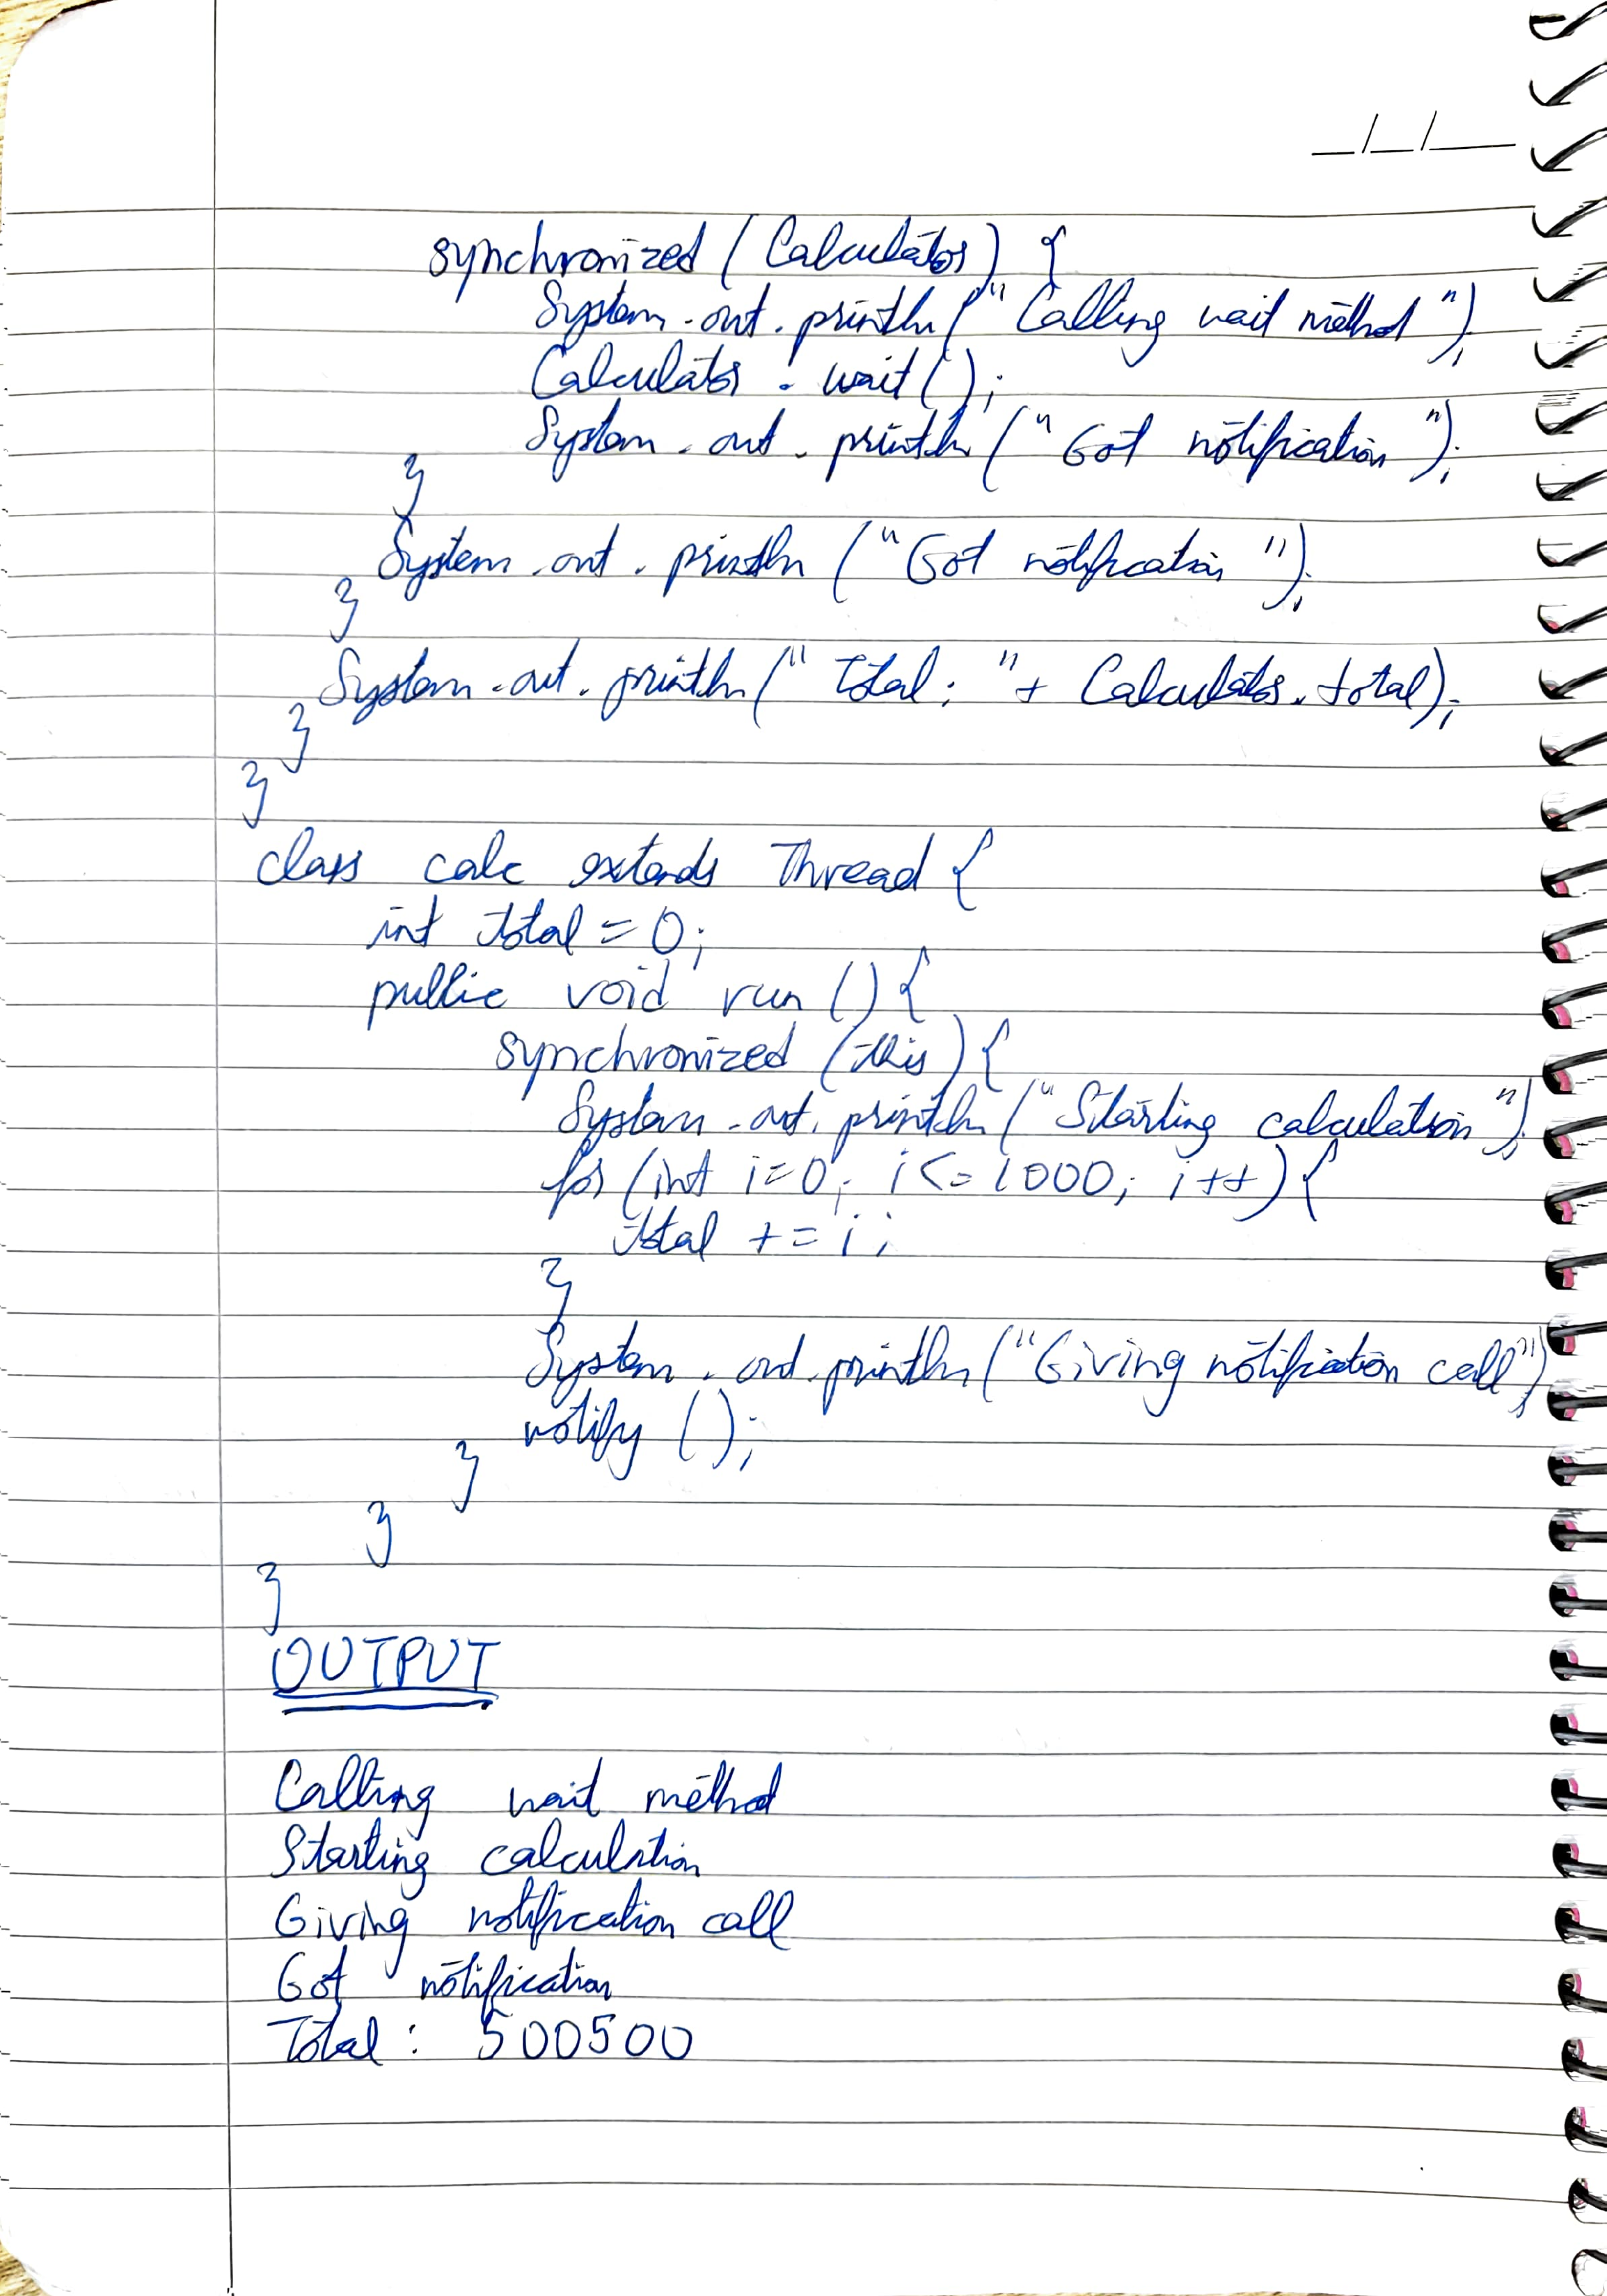 synchronized (Calculator) {
System.out.println("Calling wait method");
Calculator.wait();
System.out.println("Got notification");
}
System.out.println("Got notification");
}
System.out.println("Total: "+ Calculator.total);
}
}
class calc extends Thread {
int total = 0;
public void run () {
synchronized (this) {
System.out.println("Starting calculation");
for (int i=0; i<=1000; i++) {
total += i;
}
System.out.println("Giving notification call");
notify ();
}
}
}
OUTPUT
Calling wait method
Starting calculation
Giving notification call
Got notification
Total: 500500